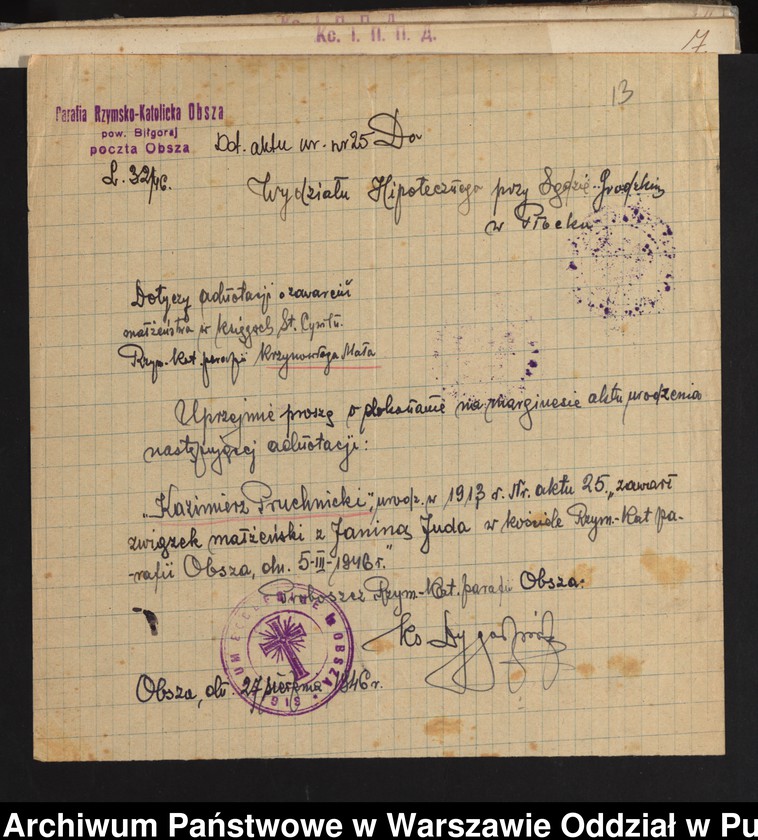 Ks. I. P. P. A.
7.
13
Parafia Rzymsko-Katolicka Obsza
pow. Biłgoraj
poczta Obsza
L. 32/46.
Dot. aktu ur. nr 25 Do
Wydziału Hipotecznego przy Sądzie Grodzkim
w Płocku
Dotyczy adnotacji o zawarciu
małżeństwa w księgach St. Cywiln.
Rzym. kat. parafii Krzynowłoga Mała
Uprzejmie proszę o dokonanie na marginesie aktu urodzenia
następującej adnotacji:
"Kazimierz Pruchnicki", urodz. w 1913 r. Nr. aktu 25, "zawarł
związek małżeński z Janiną Juda w kościele Rzym.-Kat pa-
-rafii Obsza, dn. 5-III-1946 r."
Proboszcz Rzym.-Kat. parafii Obsza:
Ks
OBSZA
1919
Obsza, dn. 27 sierpnia 1946 r.
Archiwum Państwowe w Warszawie Oddział w Pu